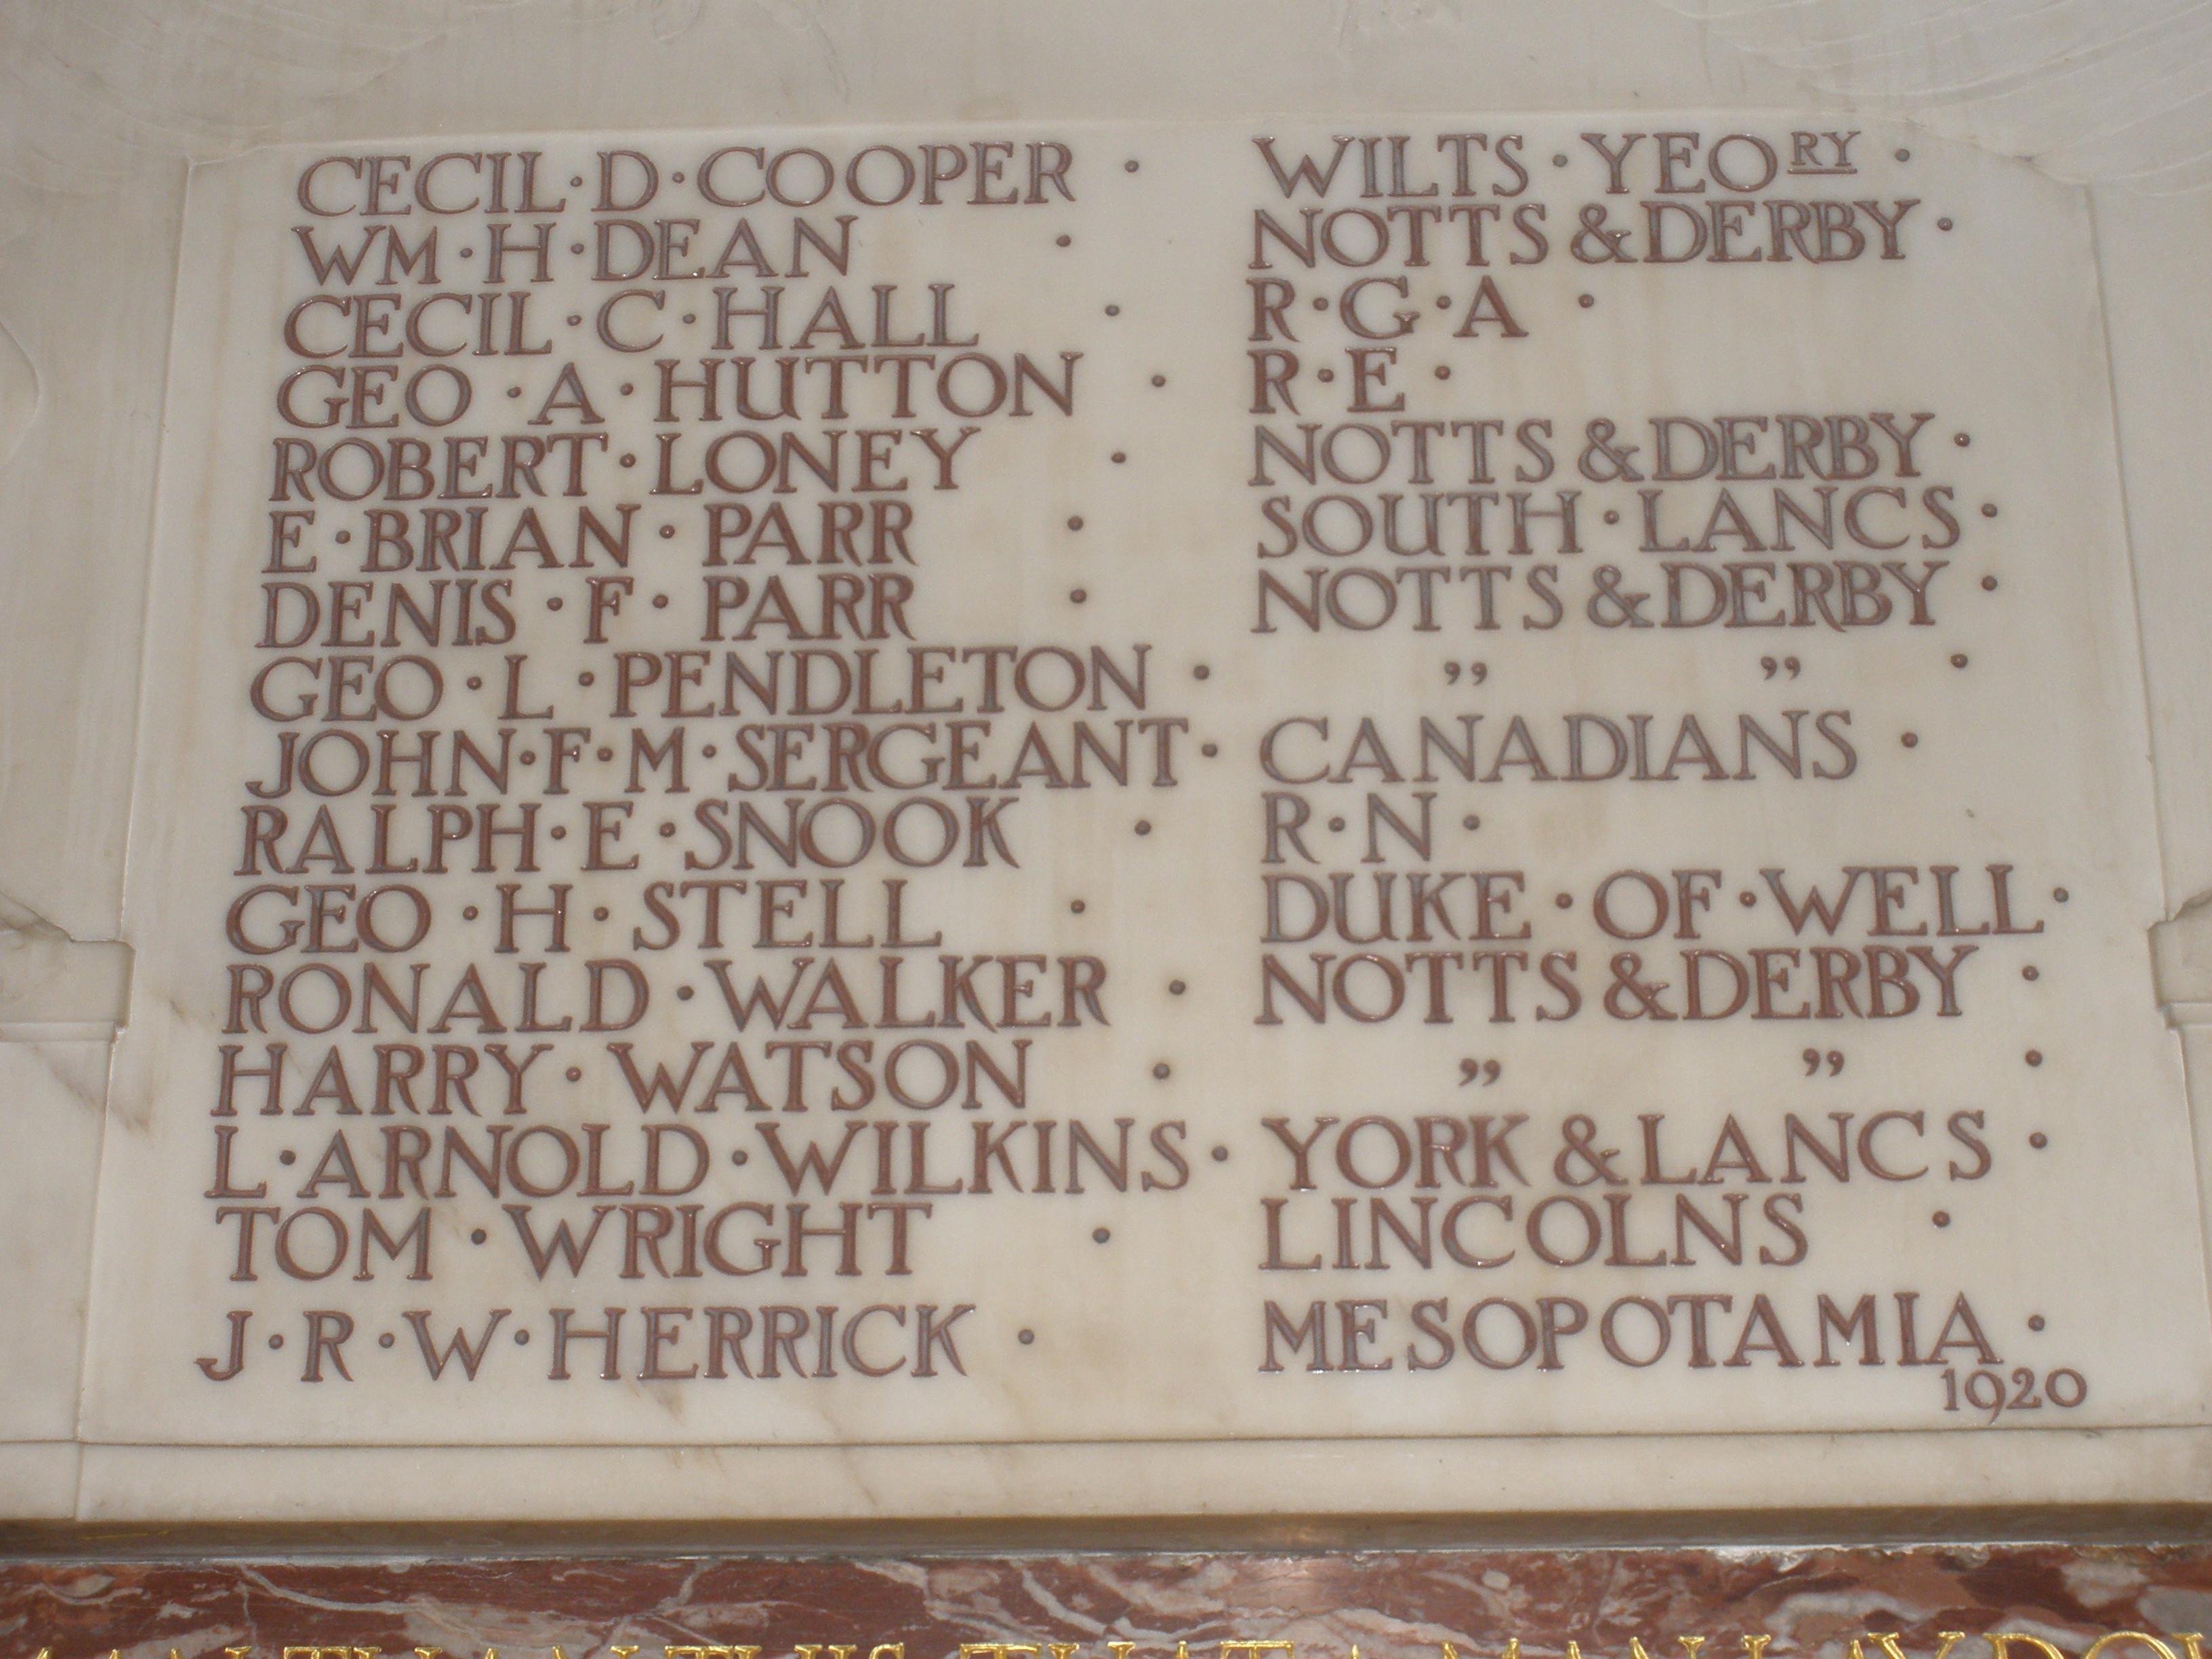 CECIL·D·COOPER · WILTS·YEORY·
WM·H·DEAN · NOTTS & DERBY·
CECIL·C·HALL · R·G·A·
GEO·A·HUTTON · R·E·
ROBERT·LONEY · NOTTS & DERBY·
E·BRIAN·PARR · SOUTH·LANCS·
DENIS·F·PARR · NOTTS & DERBY·
GEO·L·PENDLETON · ” ” ·
JOHN·F·M·SERGEANT· CANADIANS·
RALPH·E·SNOOK · R·N·
GEO·H·STELL · DUKE·OF·WELL·
RONALD·WALKER · NOTTS & DERBY·
HARRY·WATSON · ” ” ·
L·ARNOLD·WILKINS· YORK & LANCS·
TOM·WRIGHT · LINCOLNS ·
J·R·W·HERRICK · MESOPOTAMIA·
1920
THAN THIS THAT A MAN LAY